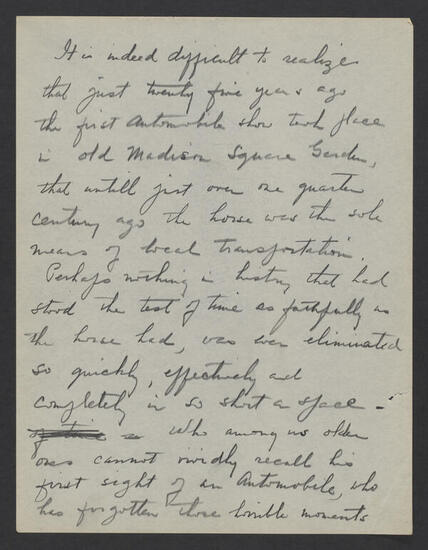 It is indeed difficult to realize
that just twenty five years ago
the first Automobile show took place
in old Madison Square Garden,
that untill just over one quarter
century ago the horse was the sole
means of local transportation.
Perhaps nothing in history that had
stood the test of time as faithfully as
the horse had, was ever eliminated
so quickly, effectively and
completely in so short a space -
of time Who among us older
ones cannot vividly recall his
first sight of an Automobile, who
has forgotten those horrible moments